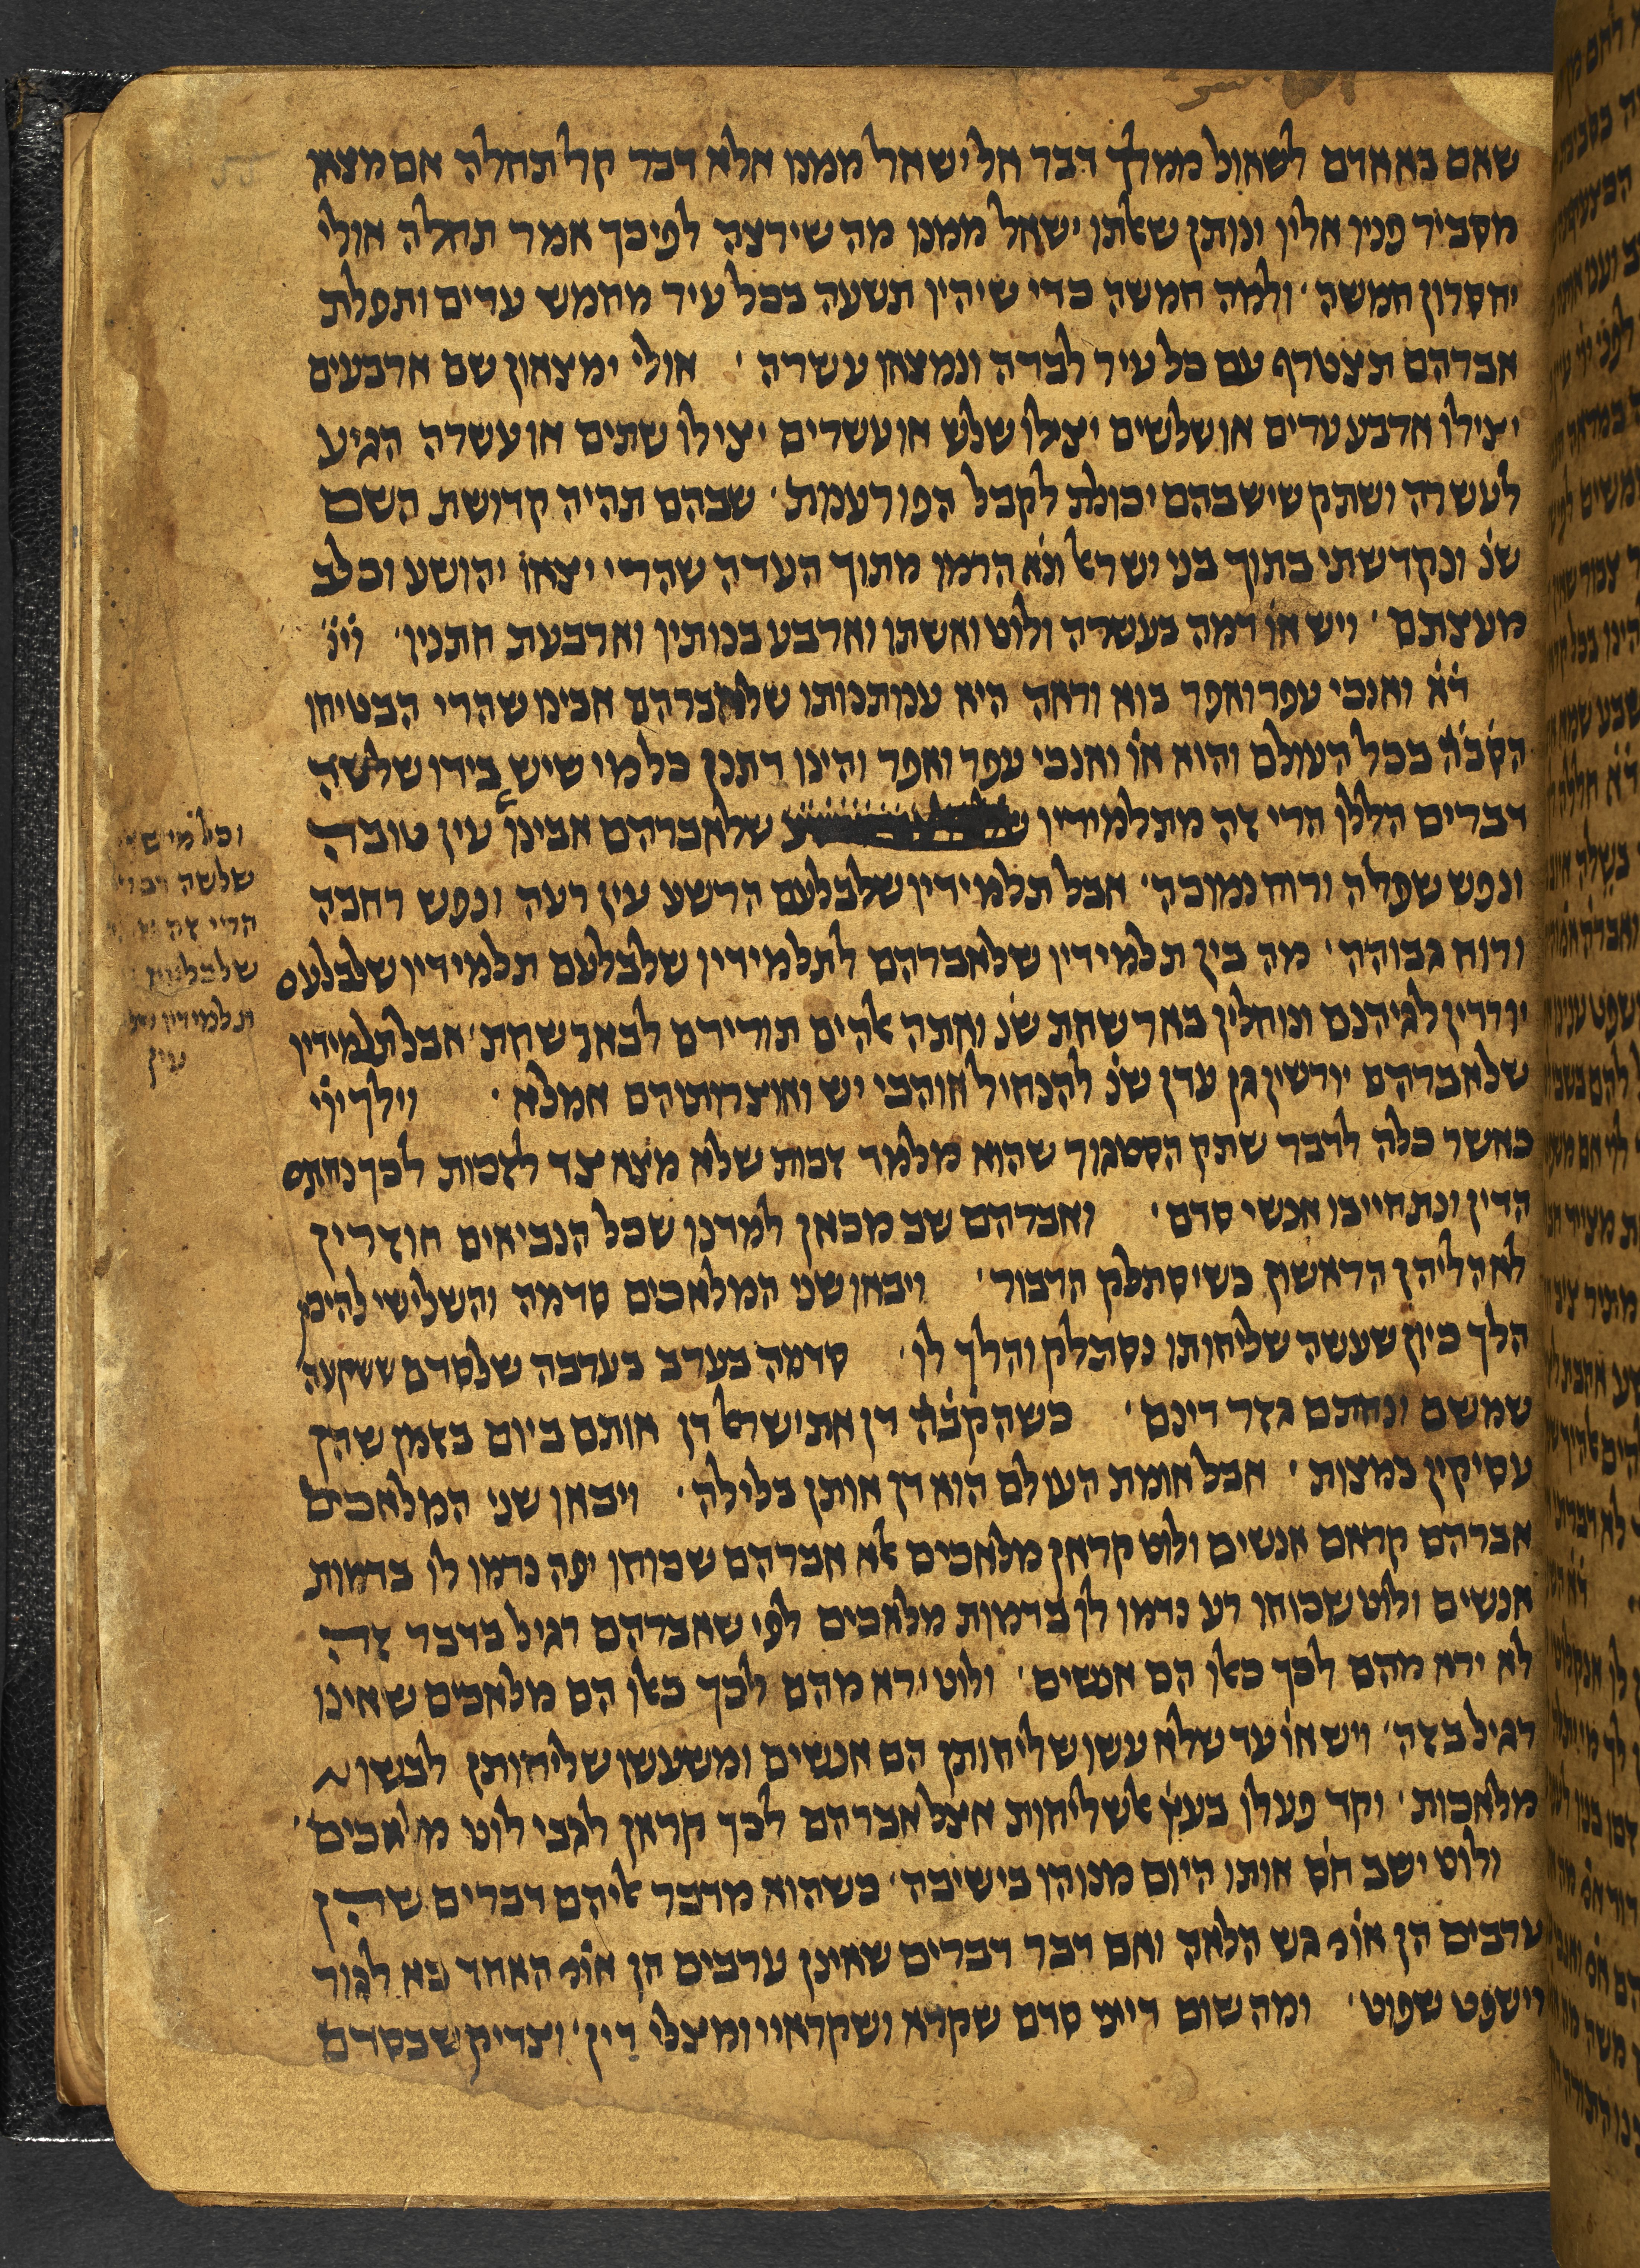 שאם בא אדם לשאול ממלך דבר אל ישאל ממנו אלא דבר קל תחלה אם מצאו
מסביר פנין אלין ונותן שאלתו ישאל ממנו מה שירצה לפיכך אמר תחלה אולי
יחסרון חמשה ׳ ולמה חמשה כדי שיהין תשעה בכל עיר מחמש ערים ותפלת
אברהם תצטרף עם כל עיר לבדה ונמצאו עשרה ׳ אולי ימצאון שם ארבעים
יצילו ארבע ערים או שלשים יצילו שלש או עשרים יצילו שתים או עשרה הגיע
לעשרה ושתק שיש בהם יכולת לקבל הפורענות ׳ שבהם תהיה קדושת השם
שנ׳ ונקדשתי בתוך בני ישראל ונא׳ הרמו מתוך העדה שהרי יצאו יהושע וכלב
מעצתם ׳ ויש או׳ דמה בעשרה ולוט ואשתו וארבע בנותיו וארבעת חתניו ׳
ד׳א׳ ואנכי עפר ואפר בוא וראה היא ענותנותו שלאברהם אבינו שהרי הבטיחו
הק׳ב׳ה׳ בכל העולם והוא או׳ ואנכי עפר ואפר והינו דתנן כל מי שיש בידו שלשה
דברים הללו הרי זה מתלמידיו שלאברהם אבינו עין טובה
ונפש שפלה ורוח נמוכה ׳ אבל תלמידיו שלבלעם הרשע עין רעה ונפש רחבה
ורוח גבוהה ׳ מה בין תלמידיו שלאברהם לתלמידיו שלבלעם תלמידיו שלבלעם
יורדין לגיהנם ונוחלין באר שחת שנ׳ ואתה אלהים תורידם לבאר שחת ׳ אבל תלמידיו
שלאברהם יורשין גן עדן שנ׳ להנחיל אוהבי יש ואוצרותיהם אמלא ׳ וילך ייי
כאשר כלה לדבר שתק הסניגור שהוא מלמד זכות שלא מצא צד לזכות לכך נחתם
הדין ונתחייבו אנשי סדם ׳ ואברהם שב מכאן למדנו שכל הנביאים חוזרין
לאהליהן הראשון כשיסתלק הדבור ׳ ויבאו שני המלאכים סדמה והשלישי להיכן
הלך כיון שעשה שליחותו נסתלק והלך לו ׳ סדמה בערב בערבה שלסדם ששקעה
שמשם ונחתם גזר דינם ׳ כשהק׳ב׳ה׳ דן את ישראל דן אותם ביום בזמן שהן
עסיקין במצות ׳ אבל אומת העולם הוא דן אותן בלילה ׳ ויבאו שני המלאכים
אברהם קראם אנשים ולוט קראן מלאכים אלא אברהם שכוחו יפה נדמו לו בדמות
אנשים ולוט שכוחו רע נדמו לו בדמות מלאכים לפי שאברהם רגיל בדבר זה
לא ירא מהם לכך כאלו הם אנשים ׳ ולוט ירא מהם לכך כאלו הם מלאכים שאינו
רגיל בזה ׳ ויש או׳ עד שלא עשו שליחותן הם אנשים ומשעשו שליחותן לבשו
מלאכות ׳ וקד פעלו בעץ אלשליחות אצל אברהם לכך קראן לגבי לוט מלאכים ׳
ולוט ישב חס׳ אותו היום מנוהו בישיבה ׳ כשהוא מדבר אליהם דברים שהן
ערבים הן או׳ גש הלאה ואם דבר דברים שאינן ערבים הן או׳ האחד בא לגור
וישפט שפוט ׳ ומה שום דייני סדם שקרא ושקראיי ומצלי דין ׳ וצדיק שבסדם
וכל מי
שלשה
הרי זה
שלבלעם
תלמידיו
עין